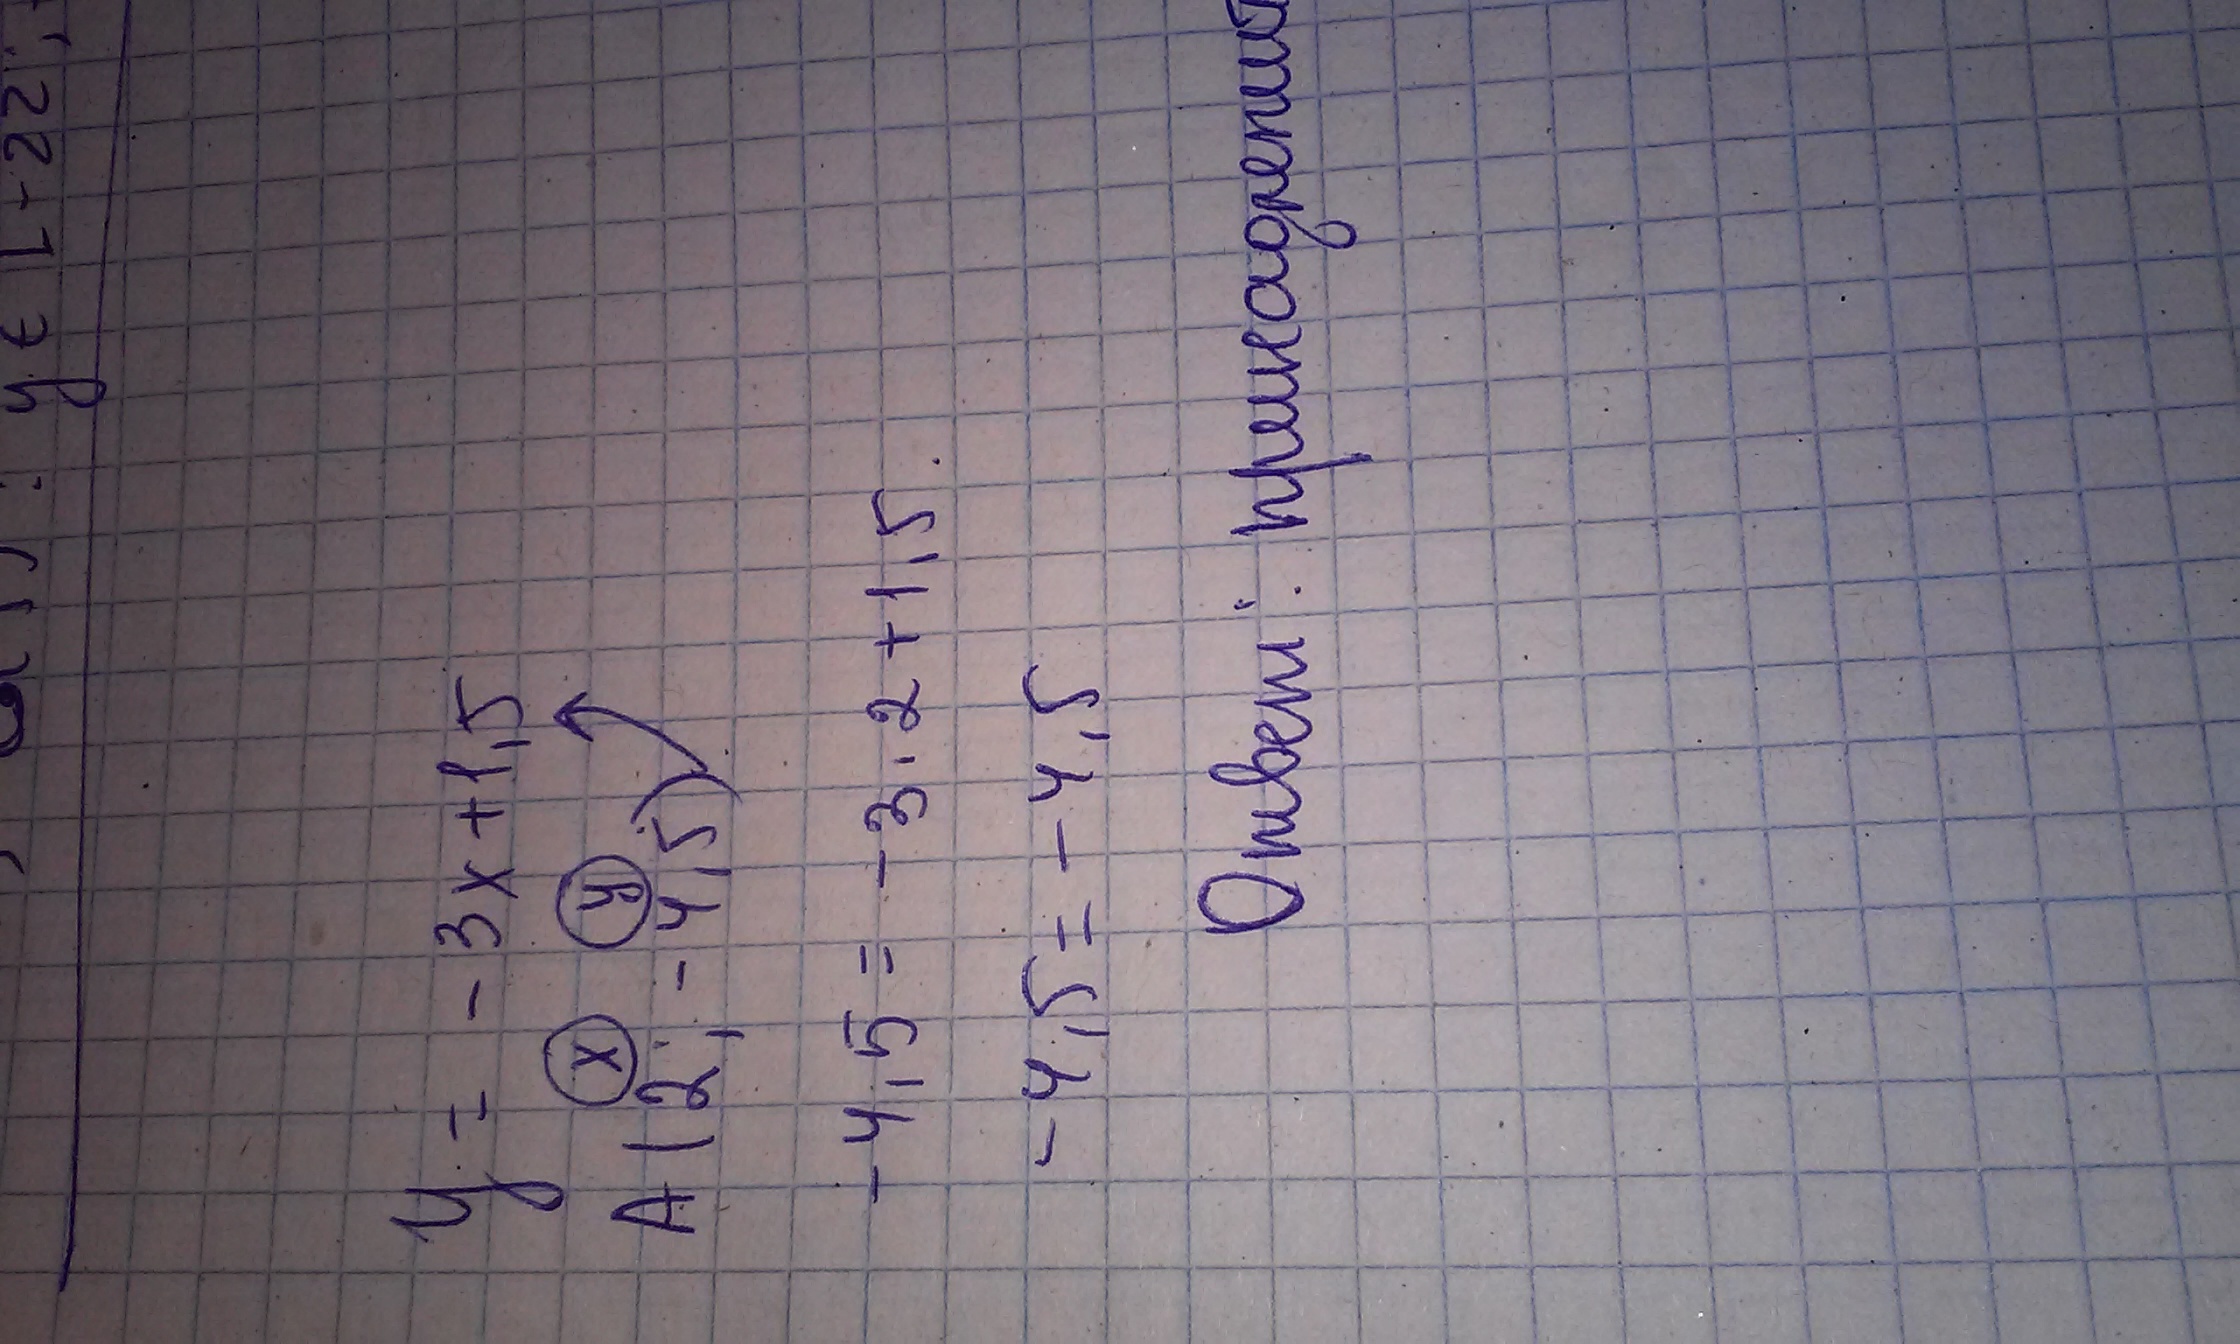 y ∈ [-22;
y = -3x + 1,5
x y
A (2; -4,5)
-4,5 = -3 · 2 + 1,5
-4,5 = -4,5
Ответ: принадлежит